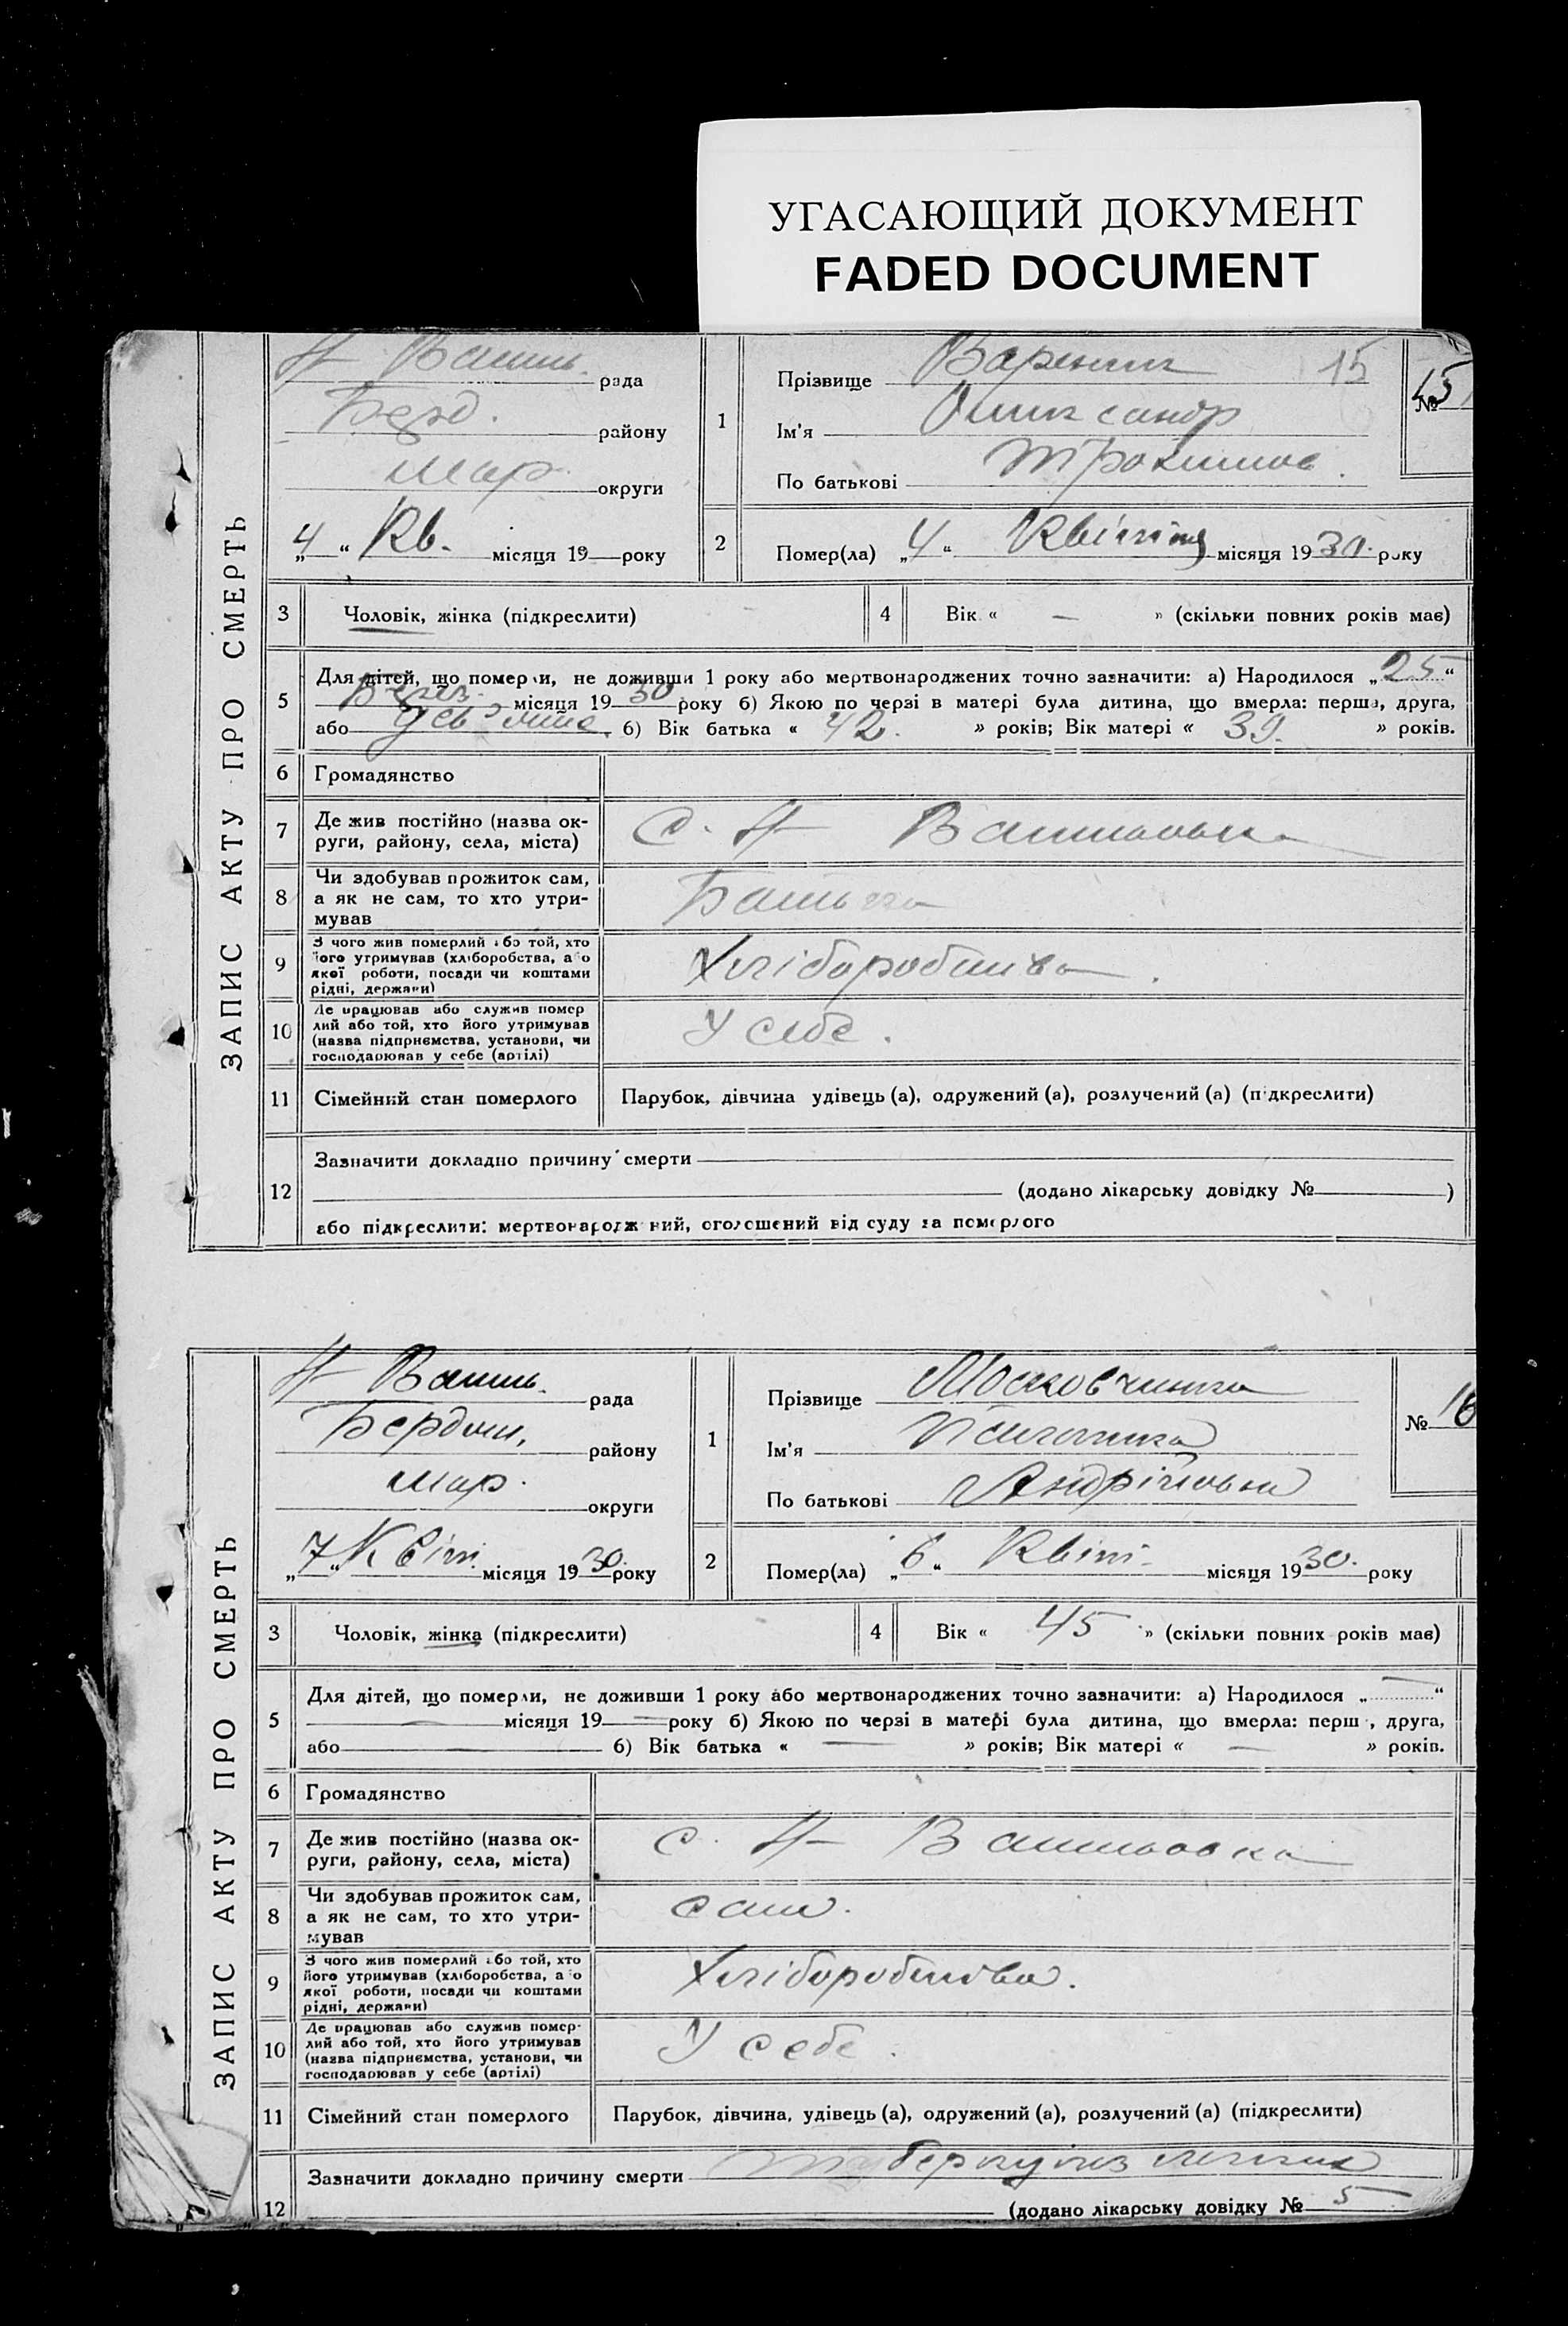 УГАСАЮЩИЙ ДОКУМЕНТ
FADED DOCUMENT
ЗАПИС АКТУ ПРО СМЕРТЬ
Н Василь. рада
Берд. району
мар. округи
„4“ Кв. місяця 19 року
1
Прізвище Вареник 15
Ім'я Олександр
По батькові Трохимов.
№ 15
2
Помер(ла) „4“ Квітня місяця 1930. року
3 Чоловік, жінка (підкреслити)
4 Вік « — » (скільки повних років має)
5 Для дітей, що померли, не доживши 1 року або мертвонароджених точно зазначити: а) Народилося „25“
Берез. місяця 1930 року б) Якою по черзі в матері була дитина, що вмерла: перша, друга,
або дев'ята. б) Вік батька « 42. » років; Вік матері « 39. » років.
6 Громадянство
7 Де жив постійно (назва ок-
руги, району, села, міста)
С. Н Васильовка
8 Чи здобував прожиток сам,
а як не сам, то хто утри-
мував
Батько
9 З чого жив померлий або той, хто
його утримував (хліборобства, або
якої роботи, посади чи коштами
рідні, держави)
Хліборобства.
10 Де працював або служив помер
лий або той, хто його утримував
(назва підприємства, установи, чи
господарював у себе (артілі)
У себе.
11 Сімейний стан померлого
Парубок, дівчина удівець (а), одружений (а), розлучений (а) (підкреслити)
12 Зазначити докладно причину смерти
(додано лікарську довідку № )
або підкреслити: мертвонароджений, оголошений від суду за померлого
ЗАПИС АКТУ ПРО СМЕРТЬ
Н Василь. рада
Бердян. району
мар. округи
„7“ Квіт. місяця 1930. року
1
Прізвище
Ім'я
По батькові Андріївна
№ 16
2
Помер(ла) „6“ Квіт. місяця 1930. року
3 Чоловік, жінка (підкреслити)
4 Вік « 45 » (скільки повних років має)
5 Для дітей, що померли, не доживши 1 року або мертвонароджених точно зазначити: а) Народилося „—“
— місяця 19— року б) Якою по черзі в матері була дитина, що вмерла: перш , друга,
або — б) Вік батька « — » років; Вік матері « — » років.
6 Громадянство
7 Де жив постійно (назва ок-
руги, району, села, міста)
С. Н Васильовка
8 Чи здобував прожиток сам,
а як не сам, то хто утри-
мував
сама.
9 З чого жив померлий або той, хто
його утримував (хліборобства, або
якої роботи, посади чи коштами
рідні, держави)
Хліборобства.
10 Де працював або служив помер-
лий або той, хто його утримував
(назва підприємства, установи, чи
господарював у себе (артілі)
У себе.
11 Сімейний стан померлого
Парубок, дівчина, удівець (а), одружений (а), розлучений (а) (підкреслити)
12 Зазначити докладно причину смерти Туберкульоз легких
(додано лікарську довідку № 5